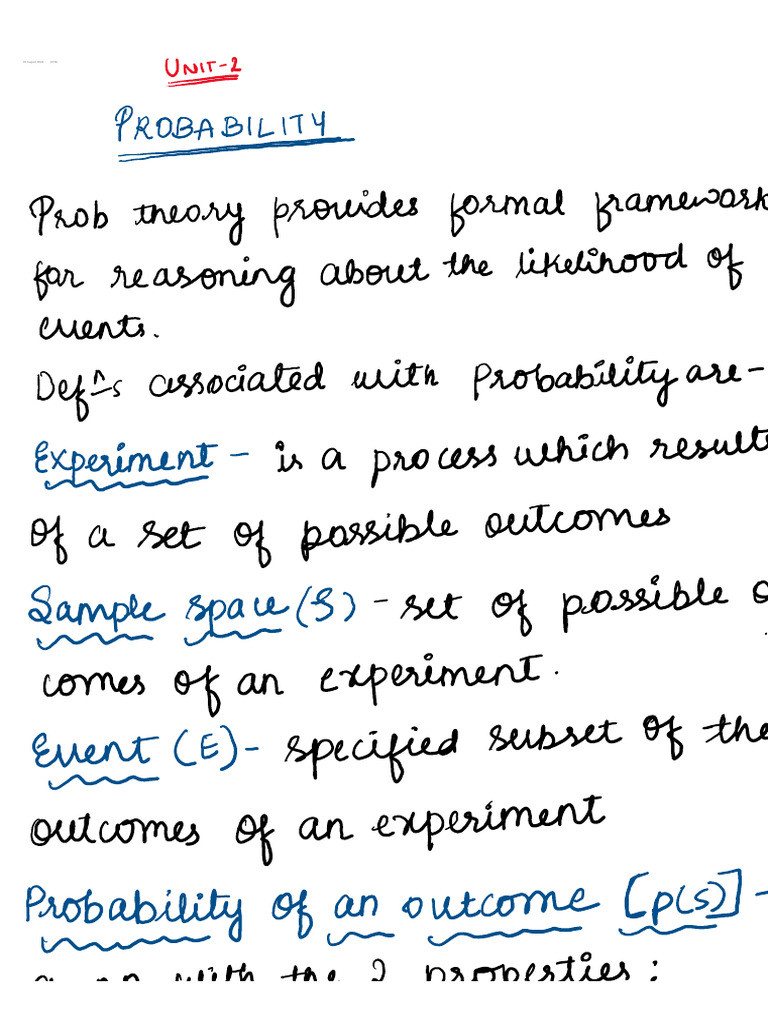 UNIT-2
PROBABILITY
Prob theory provides formal framework
for reasoning about the likelihood of
events.
Defⁿs associated with Probability are-
Experiment - is a process which results
of a set of possible outcomes
Sample space (S) - set of possible o
comes of an experiment.
Event (E) - specified subset of the
outcomes of an experiment
Probability of an outcome [p(s)] -
with the 2 properties: